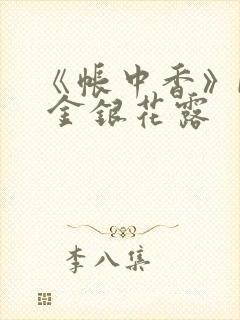 《帐中香》
金银花露
李八集